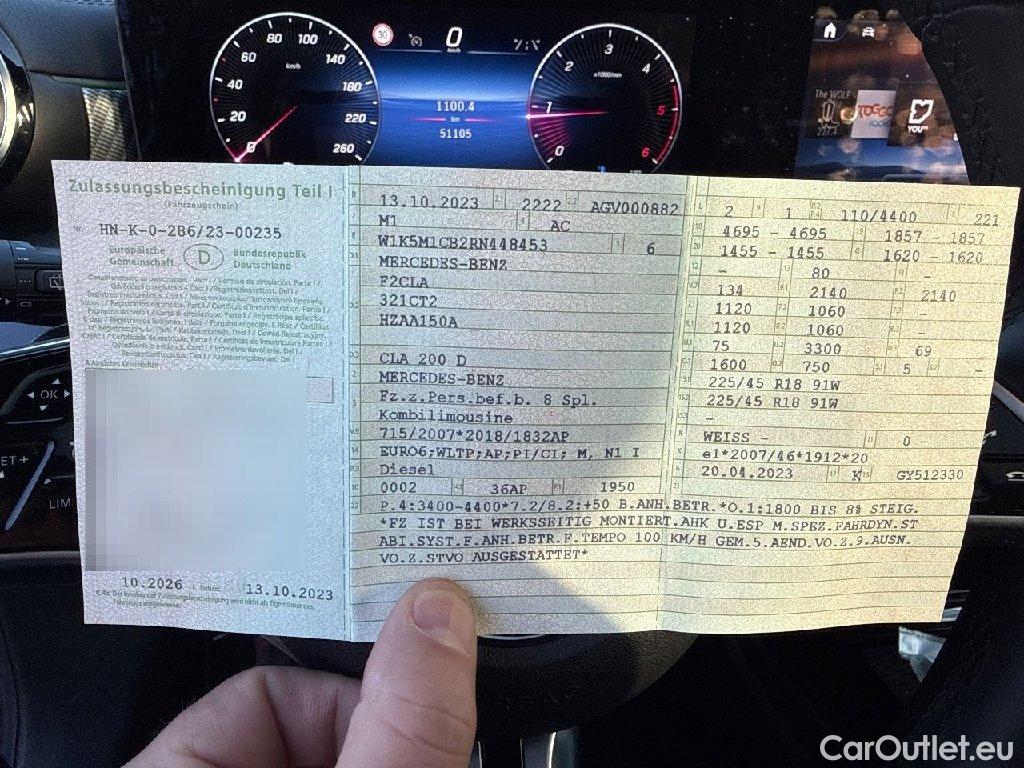 20
40
60
80
100
140
180
220
260
km/h
30
0
km/h
1100.4
km
51105
0
1
2
3
4
5
6
x1000/min
The WOLF
TOGGO
YOU
OK
SET+
LIM
Zulassungsbescheinigung Teil I
(Fahrzeugschein)
Nr. HN-K-0-286/23-00235
Europäische Gemeinschaft D Bundesrepublik Deutschland
10.2026
13.10.2023
13.10.2023 2222 AGV000882
M1 AC
W1K5M1CB2RN448453 6
MERCEDES-BENZ
F2CLA
321CT2
HZAA150A
CLA 200 D
MERCEDES-BENZ
Fz.z.Pers.bef.b. 8 Spl.
Kombilimousine
715/2007*2018/1832AP
EURO6;WLTP;AP;PI/CI; M, N1 I
Diesel
0002 36AP 1950
2 1 110/4400 221
4695 - 4695 1857 - 1857
1455 - 1455 1620 - 1620
- 80 -
134 2140 2140
1120 1060 -
1120 1060 -
75 3300 69
1600 750 5 -
225/45 R18 91W
225/45 R18 91W
-
WEISS - 0
e1*2007/46*1912*20
20.04.2023 K GY512330
P.4:3400-4400*7.2/8.2:+50 B.ANH.BETR.*O.1:1800 BIS 8% STEIG.
*FZ IST BEI WERKSSEITIG MONTIERT.AHK U.ESP M.SPEZ.FAHRDYN.ST
ABI.SYST.F.ANH.BETR.F.TEMPO 100 KM/H GEM.5.AEND.VO.Z.9.AUSN.
VO.Z.STVO AUSGESTATTET*
CarOutlet.eu